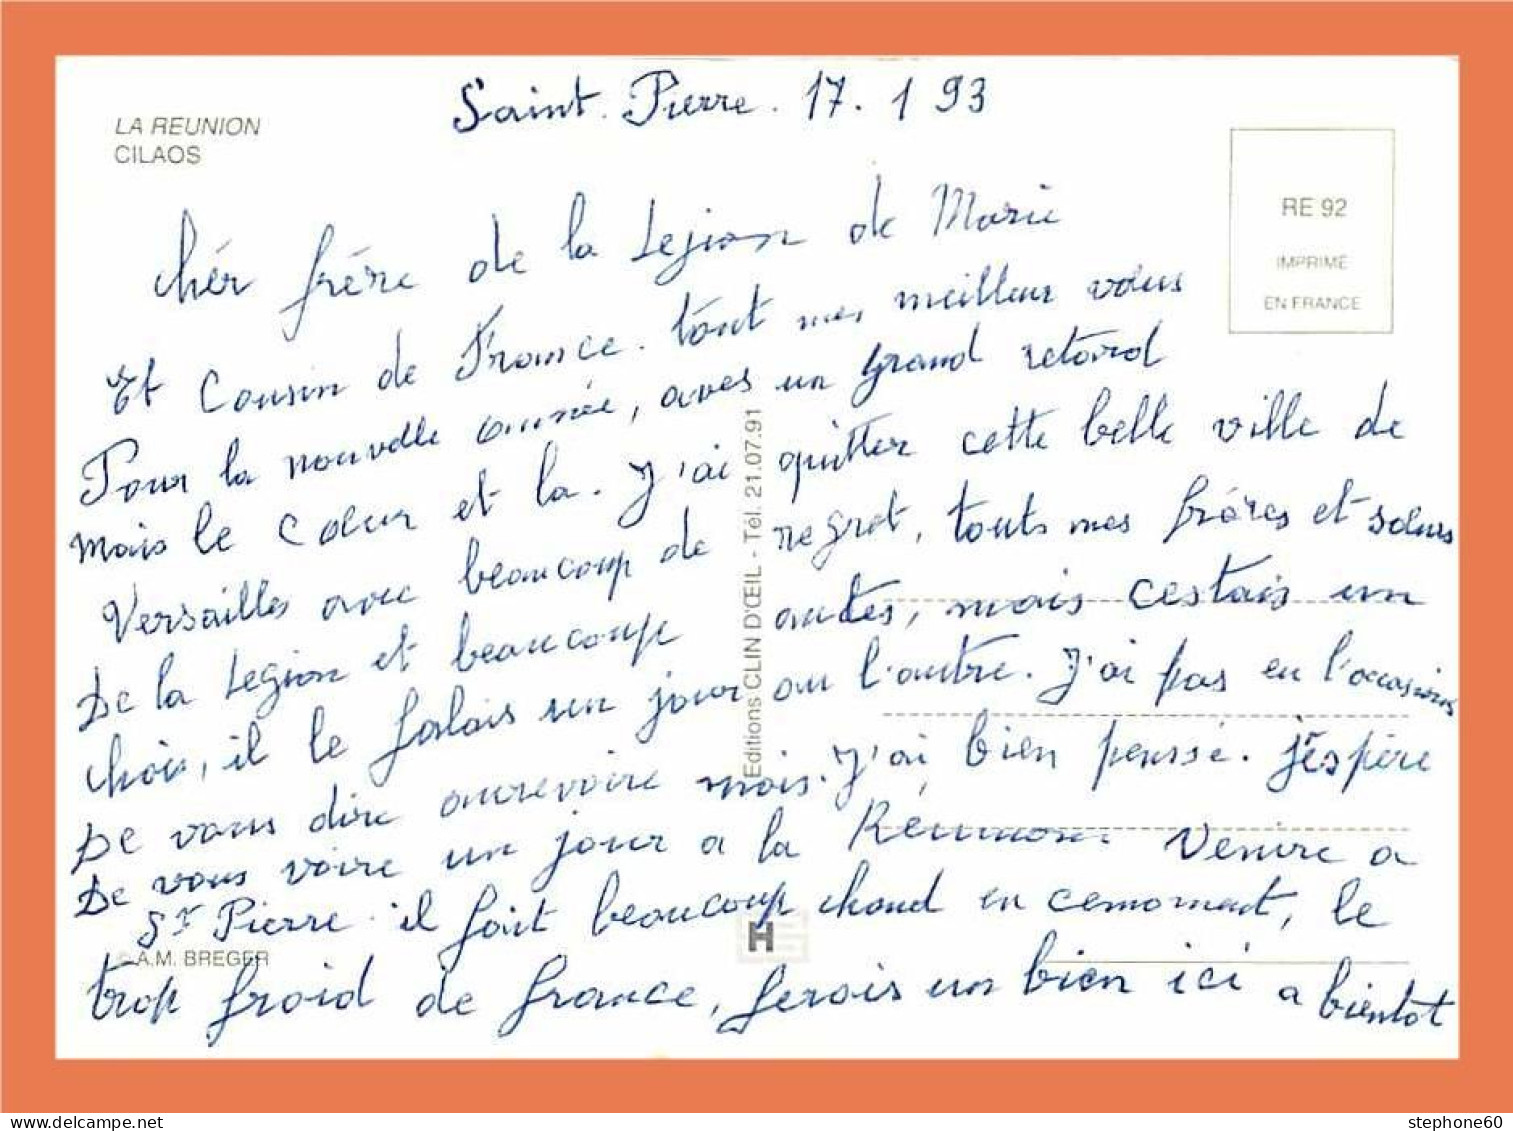 Saint. Pierre. 17. 1 93
LA REUNION
CILAOS
RE 92
IMPRIME
EN FRANCE
chér frére de la Lejion de Marie
Et Cousin de France. tout mes meilleur voeus
Pour la nouvelle année, aves un grand retard
mais le coeur et la. J'ai quitter cette belle ville de
Versailles avec beaucoup de regret, touts mes fréres et soeurs
De la Legion et beaucoup autes, mais cestais un
chois, il le falais un jour ou l'autre. J'ai pas eu l'occasions
De vous dire aurevoire mais. J'ai bien penssé. J'éspére
De vous voire un jour a la Réunion Venire a
St Pierre. il fait beaucoup chaud en cemoment, le
trop froid de france, ferais un bien ici a bientot
© A.M. BREGER
Editions CLIN D'ŒIL - Tél. 21.07.91
stephone60